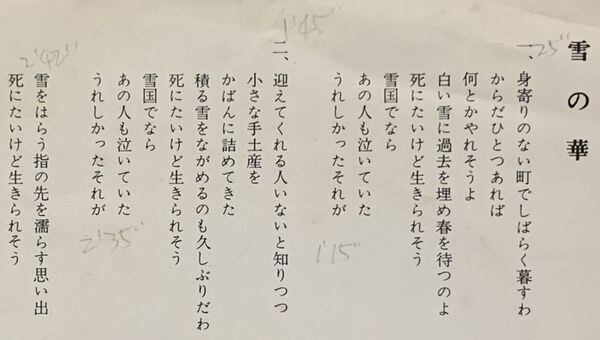 雪の華
25"
一、身寄りのない町でしばらく暮すわ
からだひとつあれば
何とかやれそうよ
白い雪に過去を埋め春を待つのよ
死にたいけど生きられそう
雪国でなら
あの人も泣いていた
うれしかったそれが
1'15"
1'45"
二、迎えてくれる人いないと知りつつ
小さな手土産を
かばんに詰めてきた
積る雪をながめるのも久しぶりだわ
死にたいけど生きられそう
雪国でなら
あの人も泣いていた
うれしかったそれが
2'35"
2'42"
雪をはらう指の先を濡らす思い出
死にたいけど生きられそう